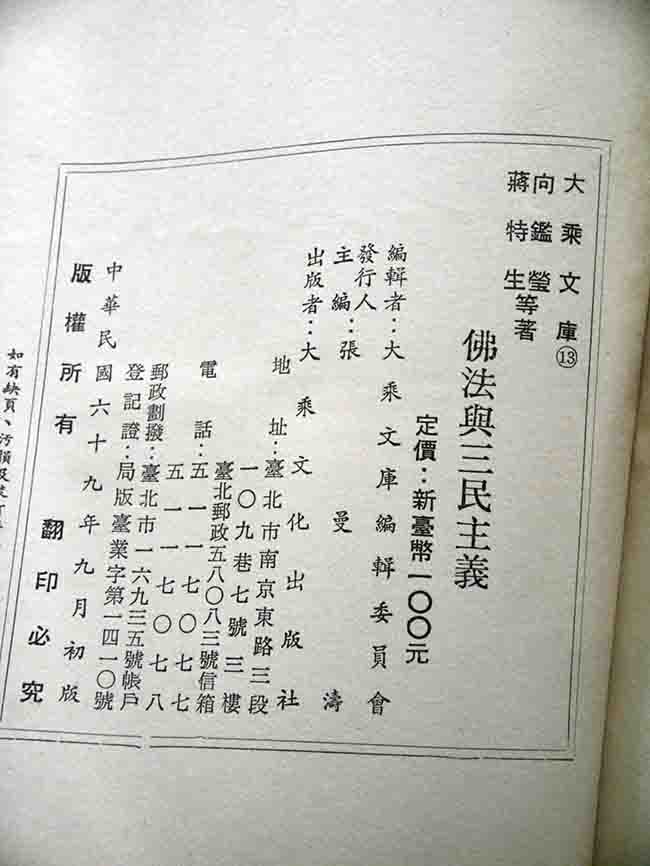 大乘文庫⑬
向鑑瑩
蔣特生
等著
佛法與三民主義
定價：新臺幣一〇〇元
編輯者：大乘文庫編輯委員會
發行人
主編：張曼濤
出版者：大乘文化出版社
地址：臺北市南京東路三段
一〇九巷七號三樓
臺北郵政五八〇八三號信箱
電話：五一一七〇七七
五一一七〇七八
郵政劃撥：臺北市一六九三五號帳戶
登記證：局版臺業字第一四一〇號
中華民國六十九年九月初版
版權所有 翻印必究
如有缺頁、污損及